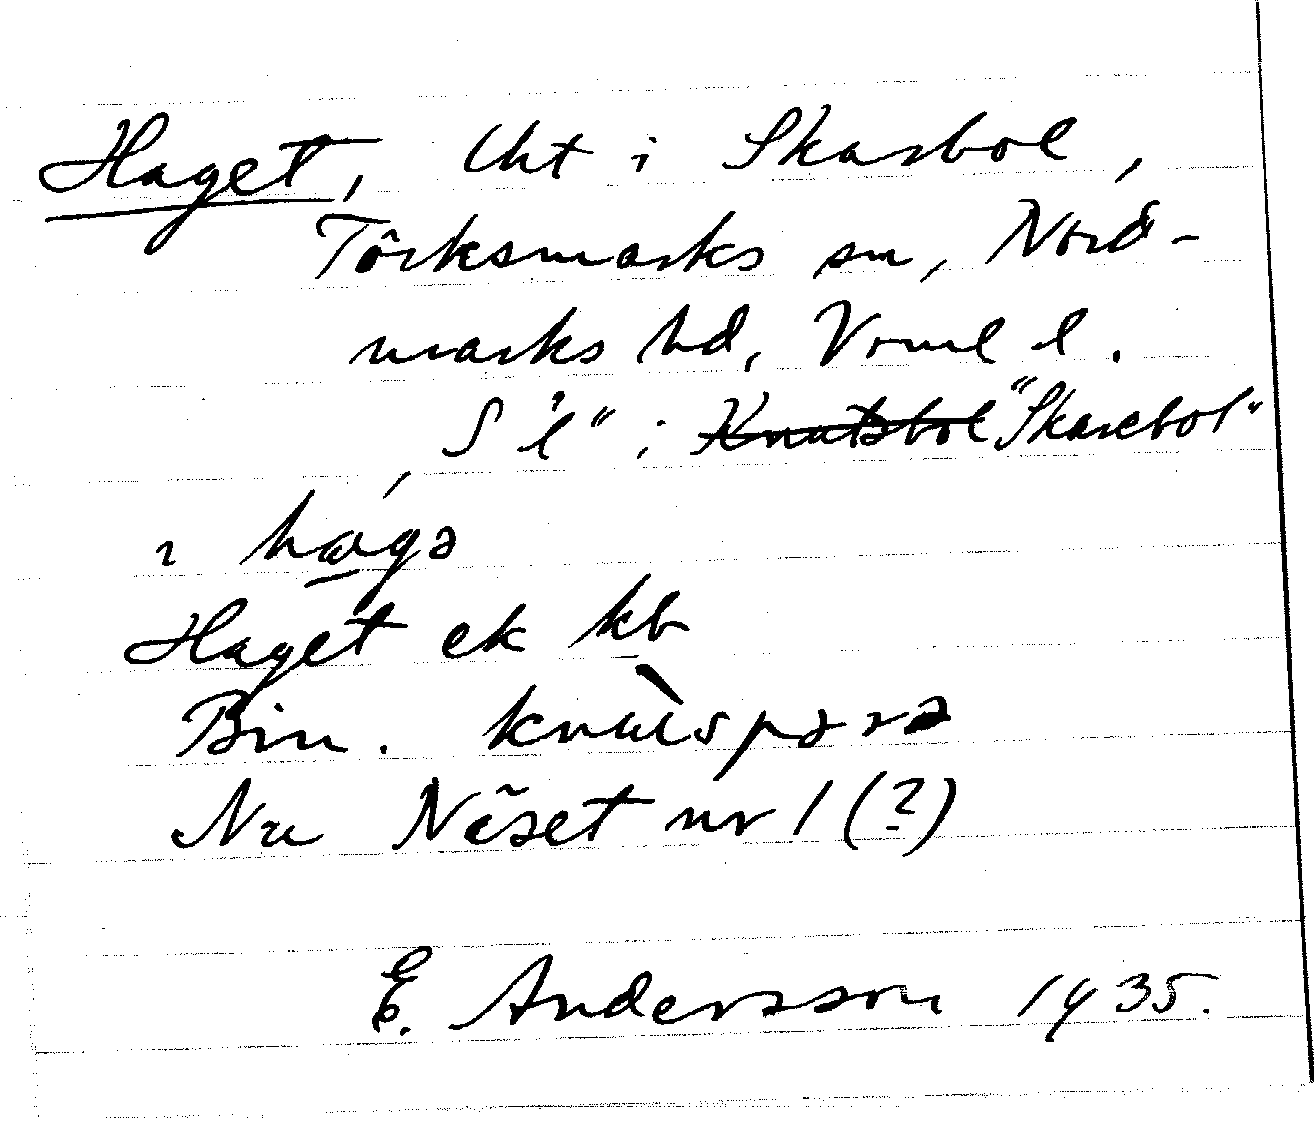 Haget, Uht i Skarbol,
Törksmarks sn, Nord-
marks hd, Vrml l.
„S l" i ~~Knutsbol~~ "Skarebol"
ɩ hægə
Haget ek kb
Bin. knu̇spərə
Nu Näset nr 1 (?)
E. Andersson 1935.